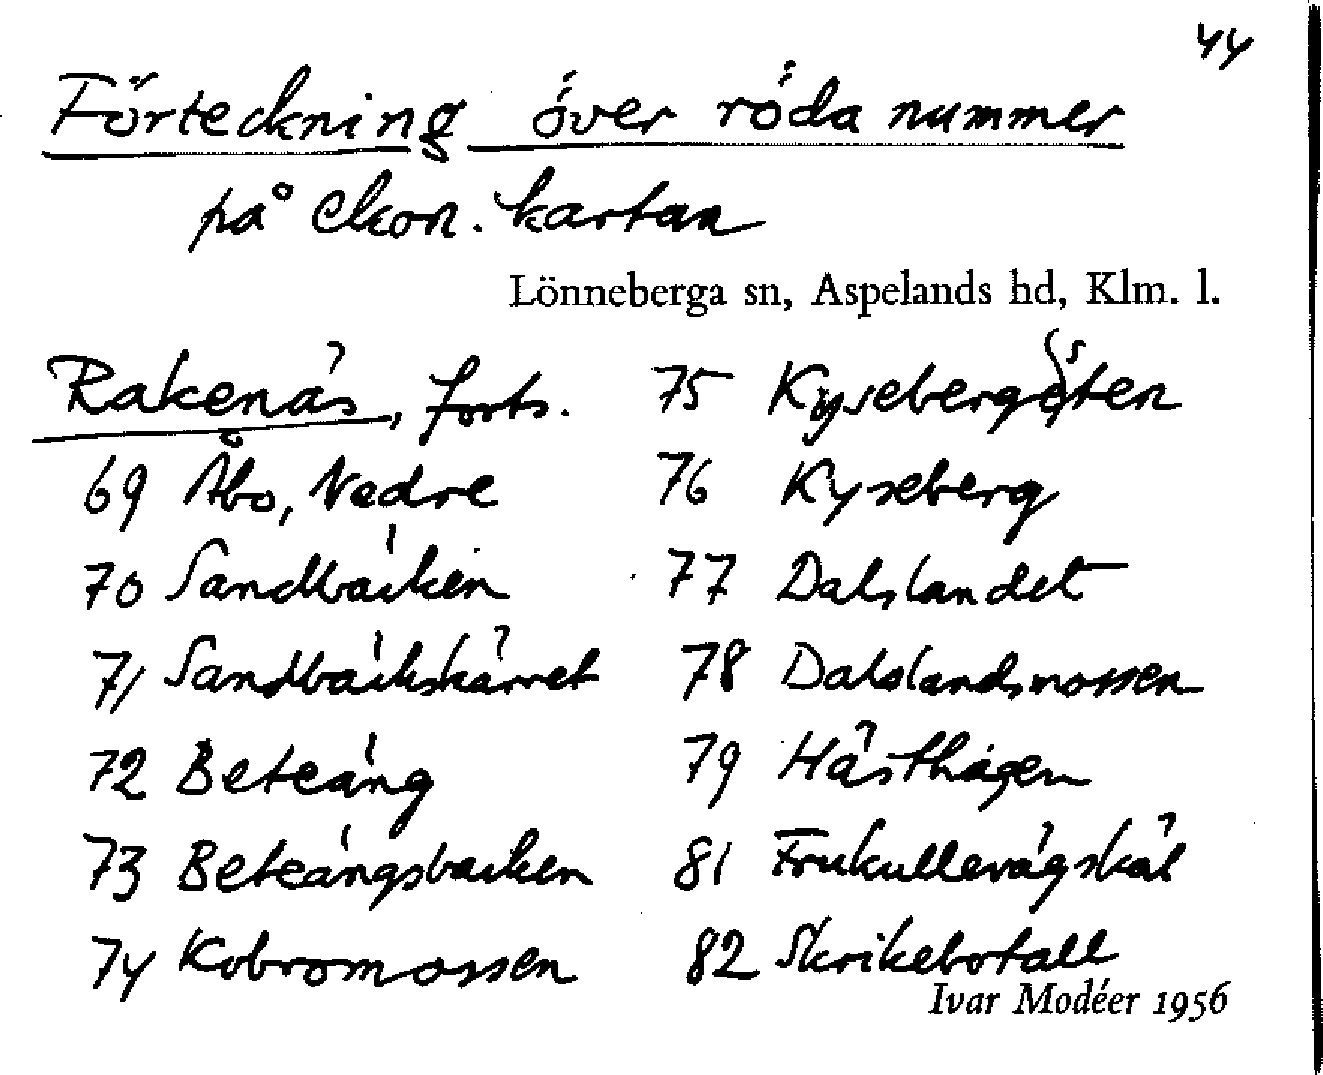 44
Förteckning över röda nummer
på ekon. kartan
Lönneberga sn, Aspelands hd, Klm. l.
Rakenäs, forts.
69 Åbo, Nedre
70 Sandbäcken
71 Sandbäckskärret
72 Beteäng
73 Beteängsbacken
74 Kobromossen
75 Kysebergösten
76 Kyseberg
77 Dalslandet
78 Dalslandsmossen
79 Hästhagen
81 Frukullevägskäl
82 Skrikebotall
Ivar Modéer 1956